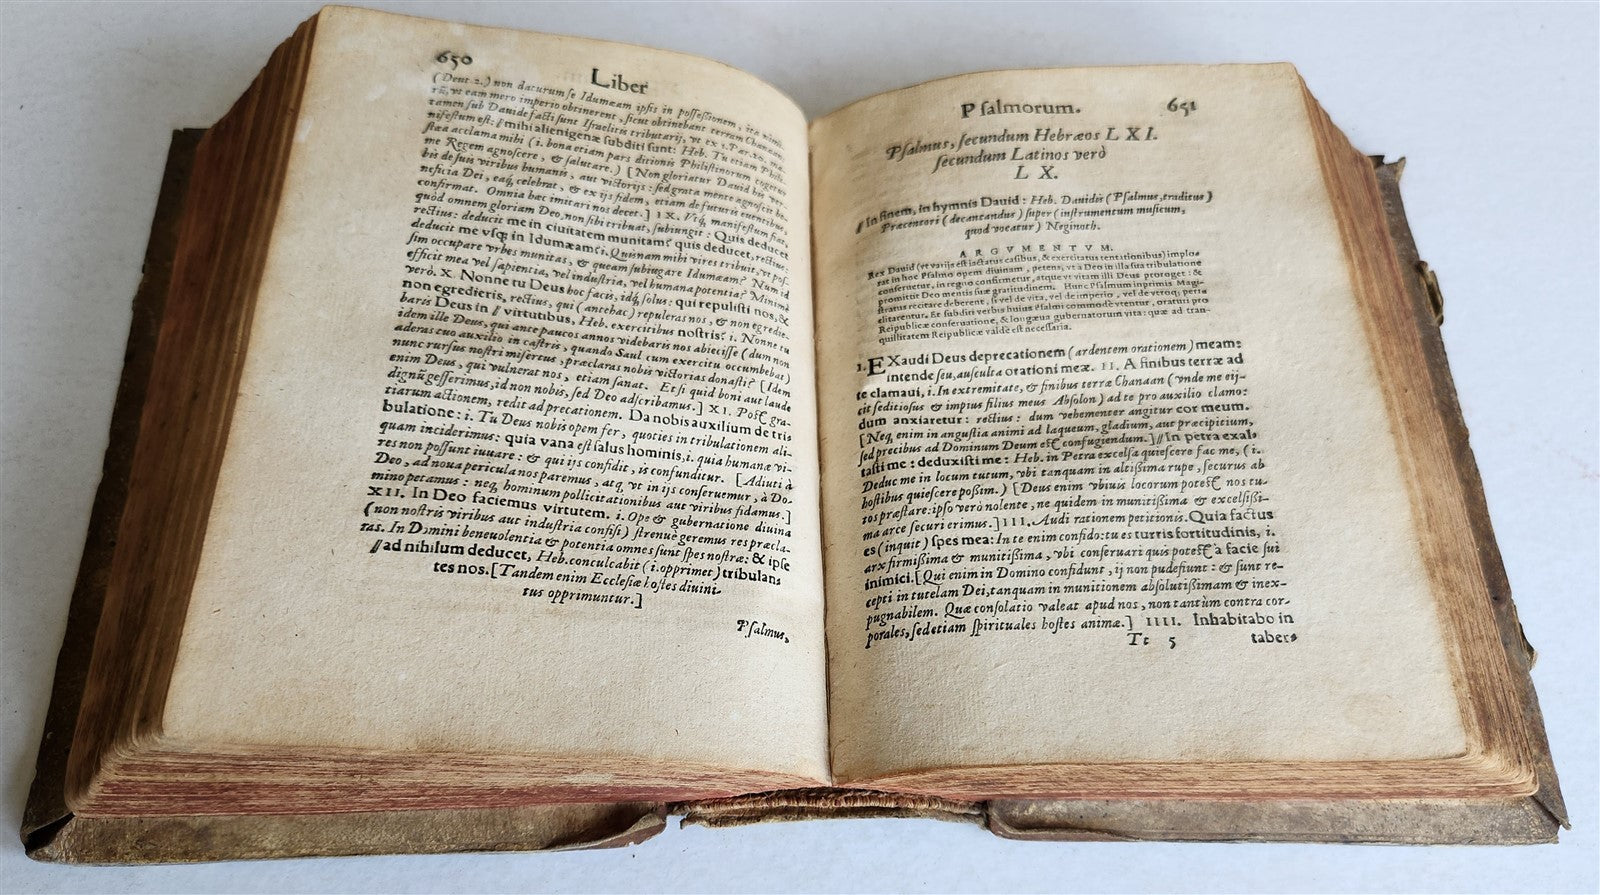 650
Liber
(Deut. 2.) non daturum se Idumæam ipsis in possessionem, ita nimi-
rũ, vt eam mero imperio obtinerent, sicut obtinebant terram Chanaan:
tamen sub Dauide facti sunt Israelitis tributarij, vt ex 1. Par. 20. ma-
nifestum est: ∥mihi alienigenæ subditi sunt: Heb. Tu etiam Phili-
stæa acclama mihi (i. bona etiam pars ditionis Philistinorum cogetur
me Regem agnoscere, & salutare.) [Non gloriatur Dauid his ver-
bis de suis viribus humanis, aut victorijs: sed grata mente agnoscit be-
neficia Dei, eaq́; celebrat, & ex ijs fidem, etiam de futuris euentibus,
confirmat. Omnia hæc imitari nos decet.] IX. Vtq́; manifestum fiat,
quòd omnem gloriam Deo, non sibi tribuat, subiungit: Quis deducet
rectius: deducit me in ciuitatem munitam? quis deducet, rectius:
deducit me vsq; in Idumæam? i. Quisnam mihi vires tribuit, vt pos-
sim occupare vrbes munitas, & queam subiugare Idumæam? Num id
efficit mea vel sapientia, vel industria, vel humana potentia? Minimè
verò. X. Nonne tu Deus hoc facis, idq́; solus: qui repulisti nos, &
non egredieris, rectius, qui (antehac) repuleras nos, & non egredie-
baris Deus in ∥ virtutibus, Heb. exercitibus nostris? i. Nonne tu
idem ille Deus, qui ante paucos annos videbaris nos abiecisse (dum non
aderas tuo auxilio in castris, quando Saul cum exercitu occumbebat)
nunc rursus nostri misertus, præclaras nobis victorias donasti? [Idem
enim Deus, qui vulnerat nos, etiam sanat. Et si quid boni aut laude
dignũ gesserimus, id non nobis, sed Deo adscribamus.] XI. Post gra-
tiarum actionem, redit ad precationem. Da nobis auxilium de tri-
bulatione: i. Tu Deus nobis opem fer, quoties in tribulationem ali-
quam inciderimus: quia vana est salus hominis, i. quia humanæ vi-
res non possunt iuuare: & qui ijs confidit, is confunditur. [Adiuti à
Deo, ad noua pericula nos paremus, atq; vt in ijs conseruemur, à Do-
mino petamus: neq; hominum pollicitationibus aut viribus fidamus.]
XII. In Deo faciemus virtutem. i. Ope & gubernatione diuina
(non nostris viribus aut industria confisi) strenuè geremus res præcla-
ras. In Domini beneuolentia & potentia omnes sunt spes nostræ: & ipse
∥ad nihilum deducet, Heb. conculcabit (i. opprimet) tribulan-
tes nos. [Tandem enim Ecclesiæ hostes diuini-
tus opprimuntur.]
Psalmus,
Psalmorum. 651
Psalmus, secundum Hebræos LXI.
secundum Latinos verò
LX.
∥In finem, in hymnis Dauid: Heb. Dauidis (Psalmus, traditus)
Præcentori (decantandus) super (instrumentum musicum,
quod vocatur) Neginoth.
ARGVMENTVM.
Rex Dauid (vt varijs est iactatus casibus, & exercitatus tentationibus) implo-
rat in hoc Psalmo opem diuinam, petens, vt à Deo in illa sua tribulatione
conseruetur, in regno confirmetur, atque vt vitam illi Deus proroget: &
promittit Deo mentis suæ gratitudinem. Hunc Psalmum inprimis Magi-
stratus recitare deberent, si vel de vita, vel de imperio, vel de vtroq; peri-
clitarentur. Et subditi verbis huius psalmi commodè vtentur, oraturi pro
Reipublicæ conseruatione, & longæua gubernatorum vita: quæ ad tran-
quillitatem Reipublicæ valdè est necessaria.
1. EXaudi Deus deprecationem (ardentem orationem) meam:
intende seu, ausculta orationi meæ. II. A finibus terræ ad
te clamaui, i. In extremitate, & finibus terræ Chanaan (vnde me eij-
cit seditiosus & impius filius meus Absolon) ad te pro auxilio clamo:
dum anxiaretur: rectius: dum vehementer angitur cor meum.
[Neq; enim in angustia animi ad laqueum, gladium, aut præcipitium,
sed precibus ad Dominum Deum est confugiendum.] ∥In petra exal-
tasti me: deduxisti me: Heb. in Petra excelsa quiescere fac me, (i.
Deduc me in locum tutum, vbi tanquam in altissima rupe, securus ab
hostibus quiescere possim.) [Deus enim vbiuis locorum potest nos tu-
tos præstare: ipso verò nolente, ne quidem in munitissima & excelsissi-
ma arce securi erimus.] III. Audi rationem petitionis. Quia factus
es (inquit) spes mea: In te enim confido: tu es turris fortitudinis, i.
arx firmissima & munitissima, vbi conseruari quis potest à facie sui
inimici. [Qui enim in Domino confidunt, ij non pudefiunt: & sunt re-
cepti in tutelam Dei, tanquam in munitionem absolutissimam & inex-
pugnabilem. Quæ consolatio valeat apud nos, non tantùm contra cor-
porales, sed etiam spirituales hostes animæ.] IIII. Inhabitabo in
Tt 5 taber-